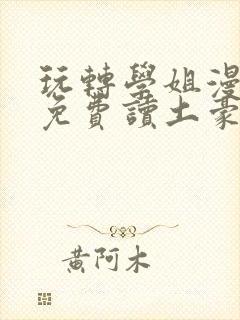 玩轉學姐漫
免費讀土豪
黃阿木